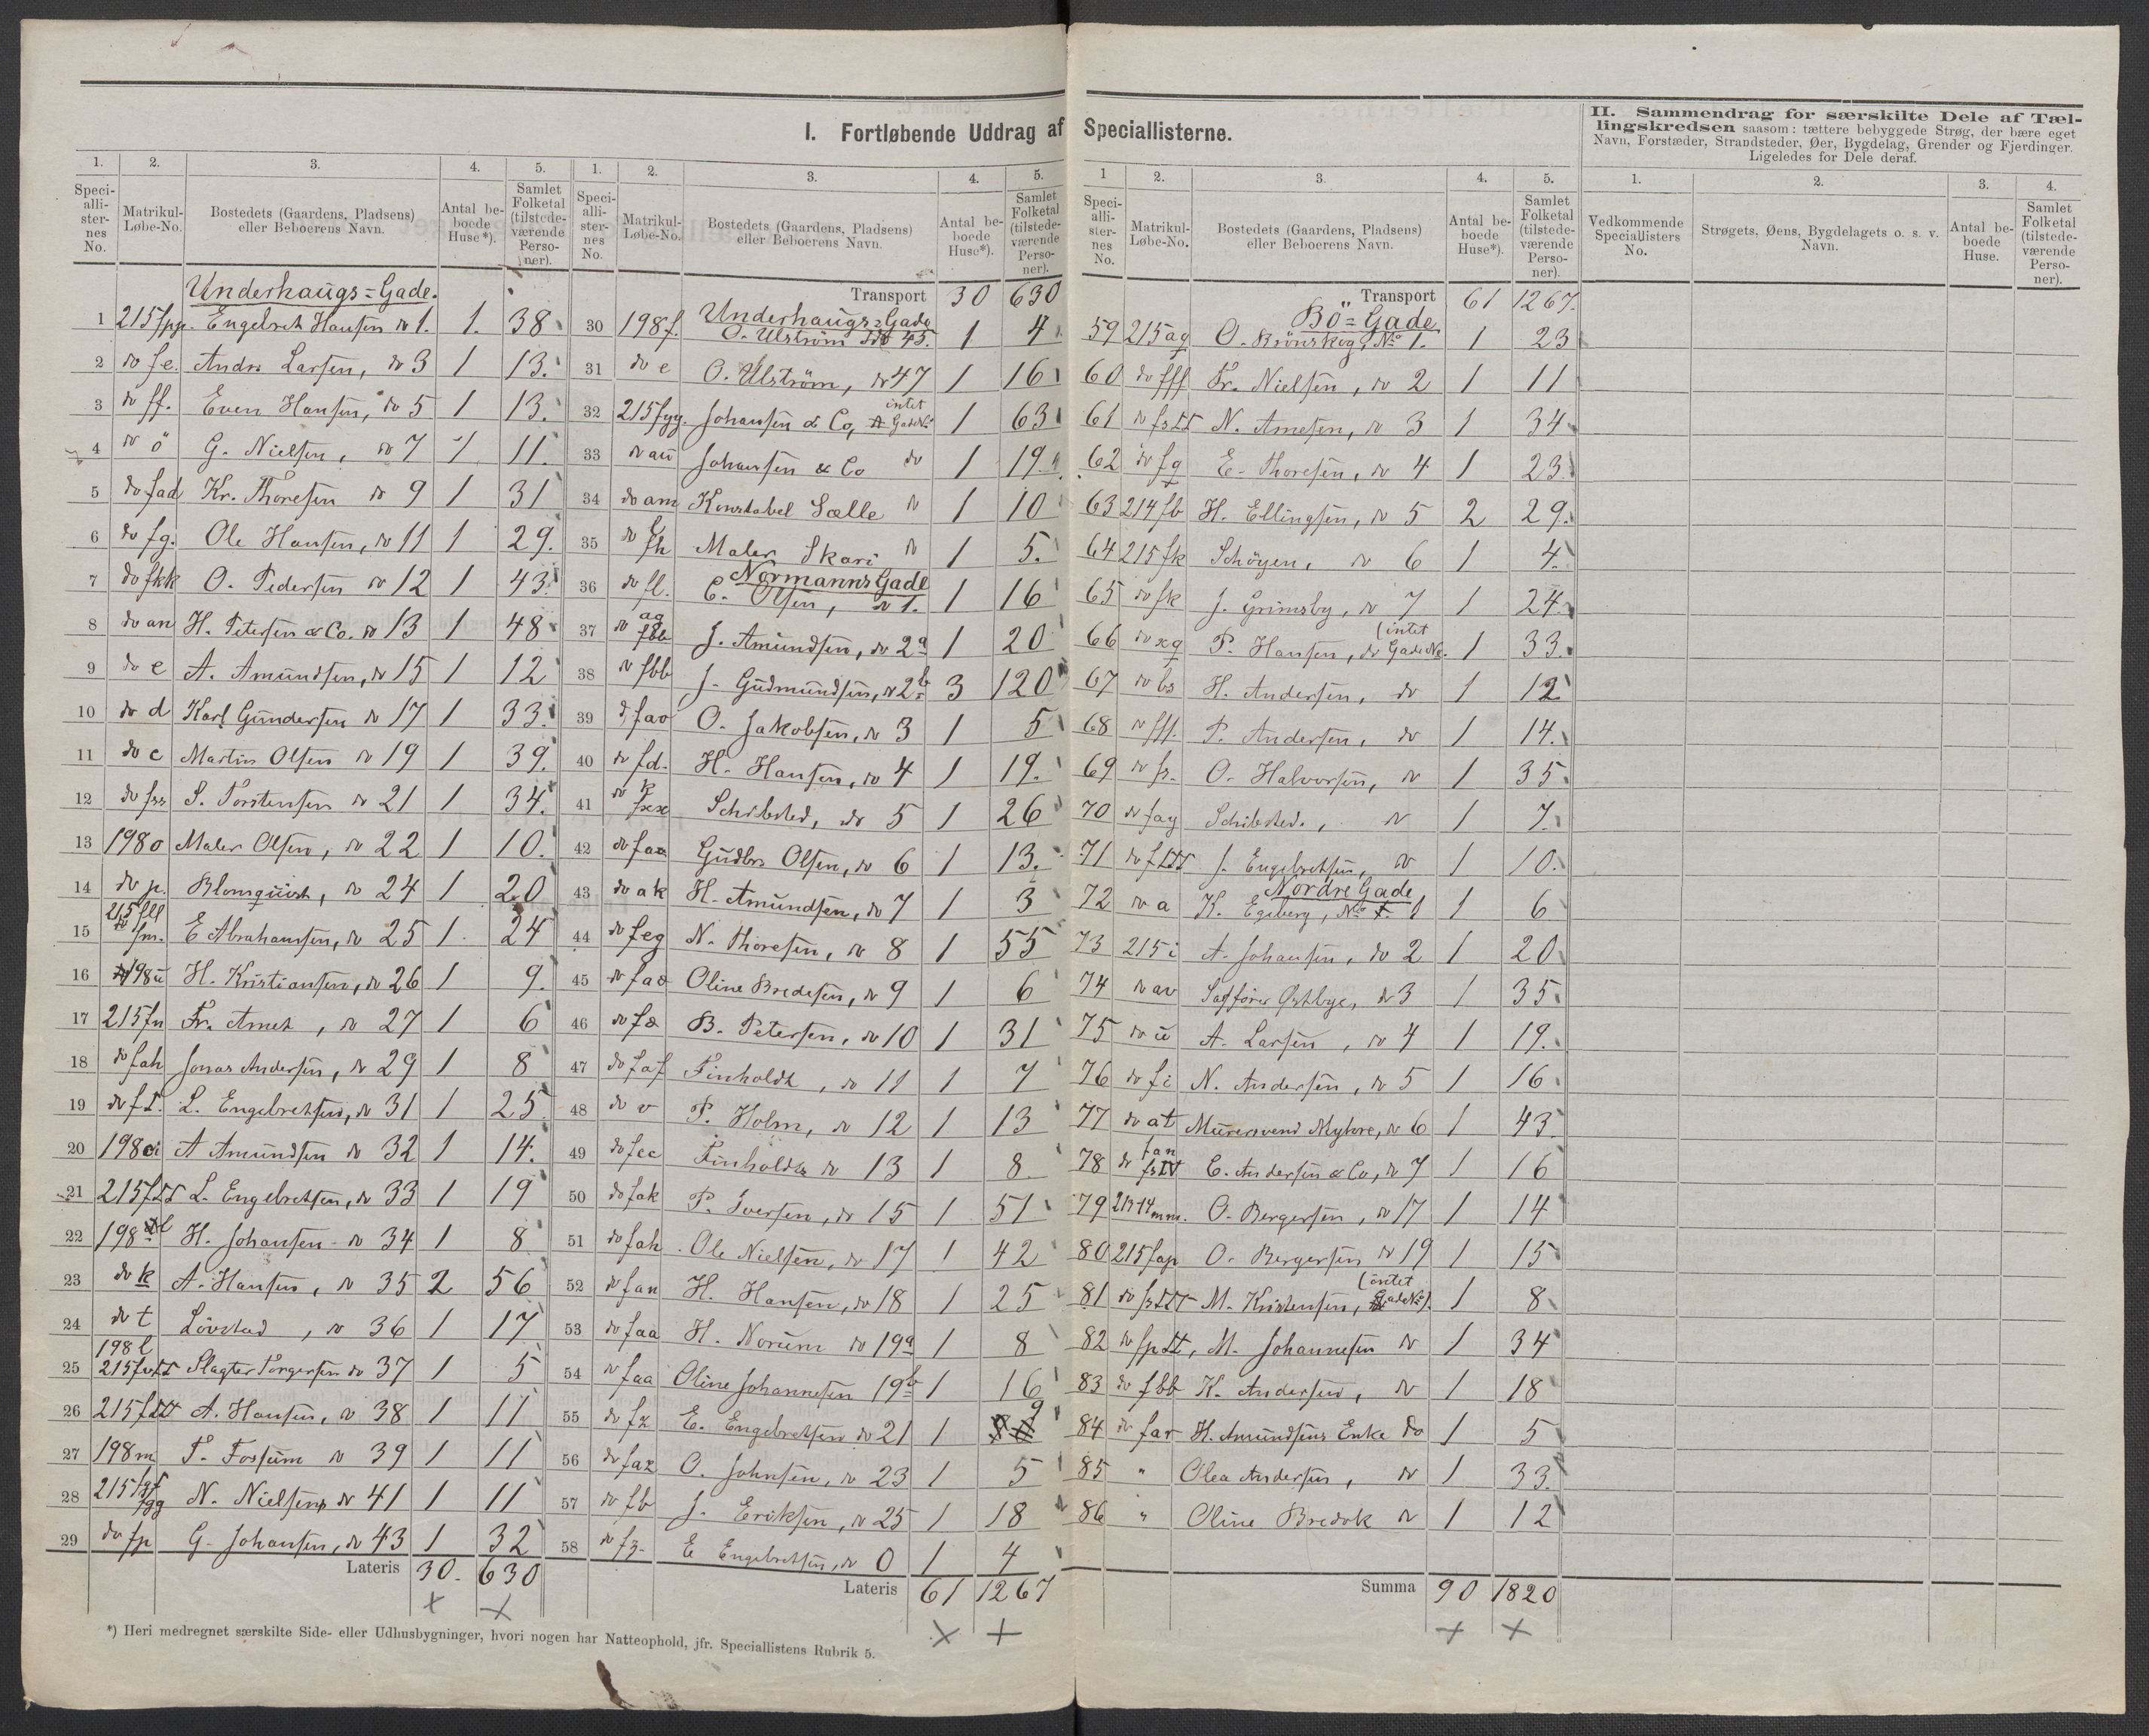 I. Fortløbende Uddrag af Speciallisterne.
1. 2. 3. 4. 5.
Speci-alli-ster-nes No. Matrikul-Løbe-No. Bostedets (Gaardens, Pladsens) eller Beboerens Navn. Antal be-boede Huse*). Samlet Folketal (tilstede-værende Perso-ner).
Underhaugs=Gade.
1 215 Engebret Hansen № 1. 1. 38
2 do fe. Andr. Larsen, do 3 1 13.
3 do ff. Even Hansen, do 5 1 13.
4 do ö G. Nielsen, do 7 1 11.
5 do fad Kr. Thoresen do 9 1 31
6 do fg. Ole Hansen, do 11 1 29.
7 do fkk O. Pedersen do 12 1 43.
8 do an H. Petersen & Co. do 13 1 48
9 do e A. Amundsen, do 15 1 12
10 do d Karl Gundersen do 17 1 33.
11 do c Martin Olsen do 19 1 39.
12 do fss S. Torstensen do 21 1 34.
13 198 o Maler Olsen, do 22 1 10.
14 do p. Blomquist, do 24 1 20
15 215 fll do fm. E Abrahamsen, do 25 1. 24
16 198 ü H. Kristiansen, do 26 1 9.
17 215 fn Fr. Amet, do 27 1 6
18 do fah Jonas Andersen, do 29 1 8
19 do ft. L. Engebretsen, do 31 1 25
20 198 A Amundsen do 32 1 14.
21 215 L. Engebretsen, do 33 1 19
22 198 H. Johansen do 34 1 8
23 do k A. Hansen, do 35 2 56
24 do t Lövstad, do 36 1 17
25 198 l 215 Slagter Torgersen do 37 1 5
26 215 A. Hansen, do 38 1 11
27 198 m T. Fossum do 39 1 11
28 215 fgg N. Nielsen, do 41 1 11
29 do fp G. Johansen, do 43 1 32
Lateris 30. 630
*) Heri medregnet særskilte Side- eller Udhusbygninger, hvori nogen har Natteophold, jfr. Speciallistens Rubrik 5.
1. 2. 3. 4. 5.
Speci-alli-ster-nes No. Matrikul-Løbe-No. Bostedets (Gaardens, Pladsens) eller Beboerens Navn. Antal be-boede Huse*). Samlet Folketal (tilstede-værende Perso-ner).
Transport 30 630
Underhaugs=Gade
30 198 f. O. Ulström do 45. 1 4
31 do e O. Ulström, do 47 1 16
32 215 fgg. Johansen & Co, intet Gade№ 1 63
33 do aü Johansen & Co do 1 19.
34 do am Konstabel Sælle do 1 10
35 do fh Maler Skari do 1 5.
Normanns Gade
36 do fl. C. Olsen, do 1. 1 16
37 do ag fbb J. Amundsen, do 2a 1 20
38 do fbb J. Gudmundsen, do 2b 3 120
39 do fao O. Jakobsen, do 3 1 5
40 do fd. H. Hansen, do 4 1 19.
41 do fxx Schibsted, do 5 1 26
42 do faa Gudbr. Olsen, do 6 1 13.
43 do ak H. Amundsen, do 7 1 3
44 do feg N. Thoresen, do 8 1 55
45 do fao Oline Bredesen, do 9 1 6
46 do fö B. Petersen, do 10 1 31
47 do faf Finholdt, do 11 1 7
48 do v P. Holm, do 12 1 13
49 do fcc Finholdt do 13 1 8.
50 do fak P. Iversen, do 15 1 51
51 do fah Ole Nielsen, do 17 1 42
52 do fan H. Hansen, do 18 1 25
53 do faa H. Norum do 19a 1 8
54 do faa Oline Johannesen 19b 1 16
55 do fx E. Engebretsen do 21 1 9
56 do fax O. Johnsen, do 23 1 5
57 do fb J. Eriksen, do 25 1 18
58 do fz. E Engebretsen, do 0 1 4
Lateris 61 1267
1 2. 3. 4. 5.
Speci-alli-ster-nes No. Matrikul-Løbe-No. Bostedets (Gaardens, Pladsens) eller Beboerens Navn. Antal be-boede Huse*). Samlet Folketal (tilstede-værende Perso-ner).
Transport 61 1267.
Bö=Gade
59 215 aq O. Brönskog, № 1. 1 23
60 do fff Fr. Nielsen, do 2 1 11
61 do N. Arnesen, do 3 1 34
62 do fq E. Thoresen, do 4 1 23
63 214 fb H. Ellingsen, do 5 2 29.
64 215 fk Schöyen, do 6 1 4.
65 do fk J. Grimsby, do 7 1 24
66 do xq P. Hansen, do (intet Gade№. 1 33.
67 do bs H. Andersen, do 1 12
68 do fff. P. Andersen, do 1 14.
69 do fr. O. Halvorsen, do 1 35.
70 do fag Schibsted, do 1 7.
71 do J. Engebretsen, do 1 10.
Nordre Gade
72 do a K. Egeberg, № 1 1 6
73 215 i A. Johansen, do 2 1 20
74 do av Østbye, do 3 1 35
75 do ü A. Larsen, do 4 1 19.
76 do fi N. Andersen, do 5 1 16
77 do at Murersvend Myhre, do 6 1 43.
78 do fan E. Andersen & Co, do 7 1 16
79 213-14 mm. O. Bergersen, do 17 1 14
80 215 fap O. Bergersen do 19 1 15
81 do M. Kristensen, (intet Gade№). 1 8
82 do M. Johannesen do 1 34
83 do fbb K. Andersen, do 1 18
84 do far H. Amundsens Enke do 1 5
85 " Olea Andersen, do 1 33.
86 " Oline Bredok do 1 12
Summa 90 1820
II. Sammendrag for særskilte Dele af Tæl-
lingskredsen saasom: tættere bebyggede Strøg, der bære eget
Navn, Forstæder, Strandsteder, Øer, Bygdelag, Grender og Fjerdinger.
Ligeledes for Dele deraf.
1. 2. 3. 4.
Vedkommende Speciallisters No. Strøgets, Øens, Bygdelagets o. s. v. Navn. Antal be-boede Huse. Samlet Folketal (tilstede-værende Perso-ner).